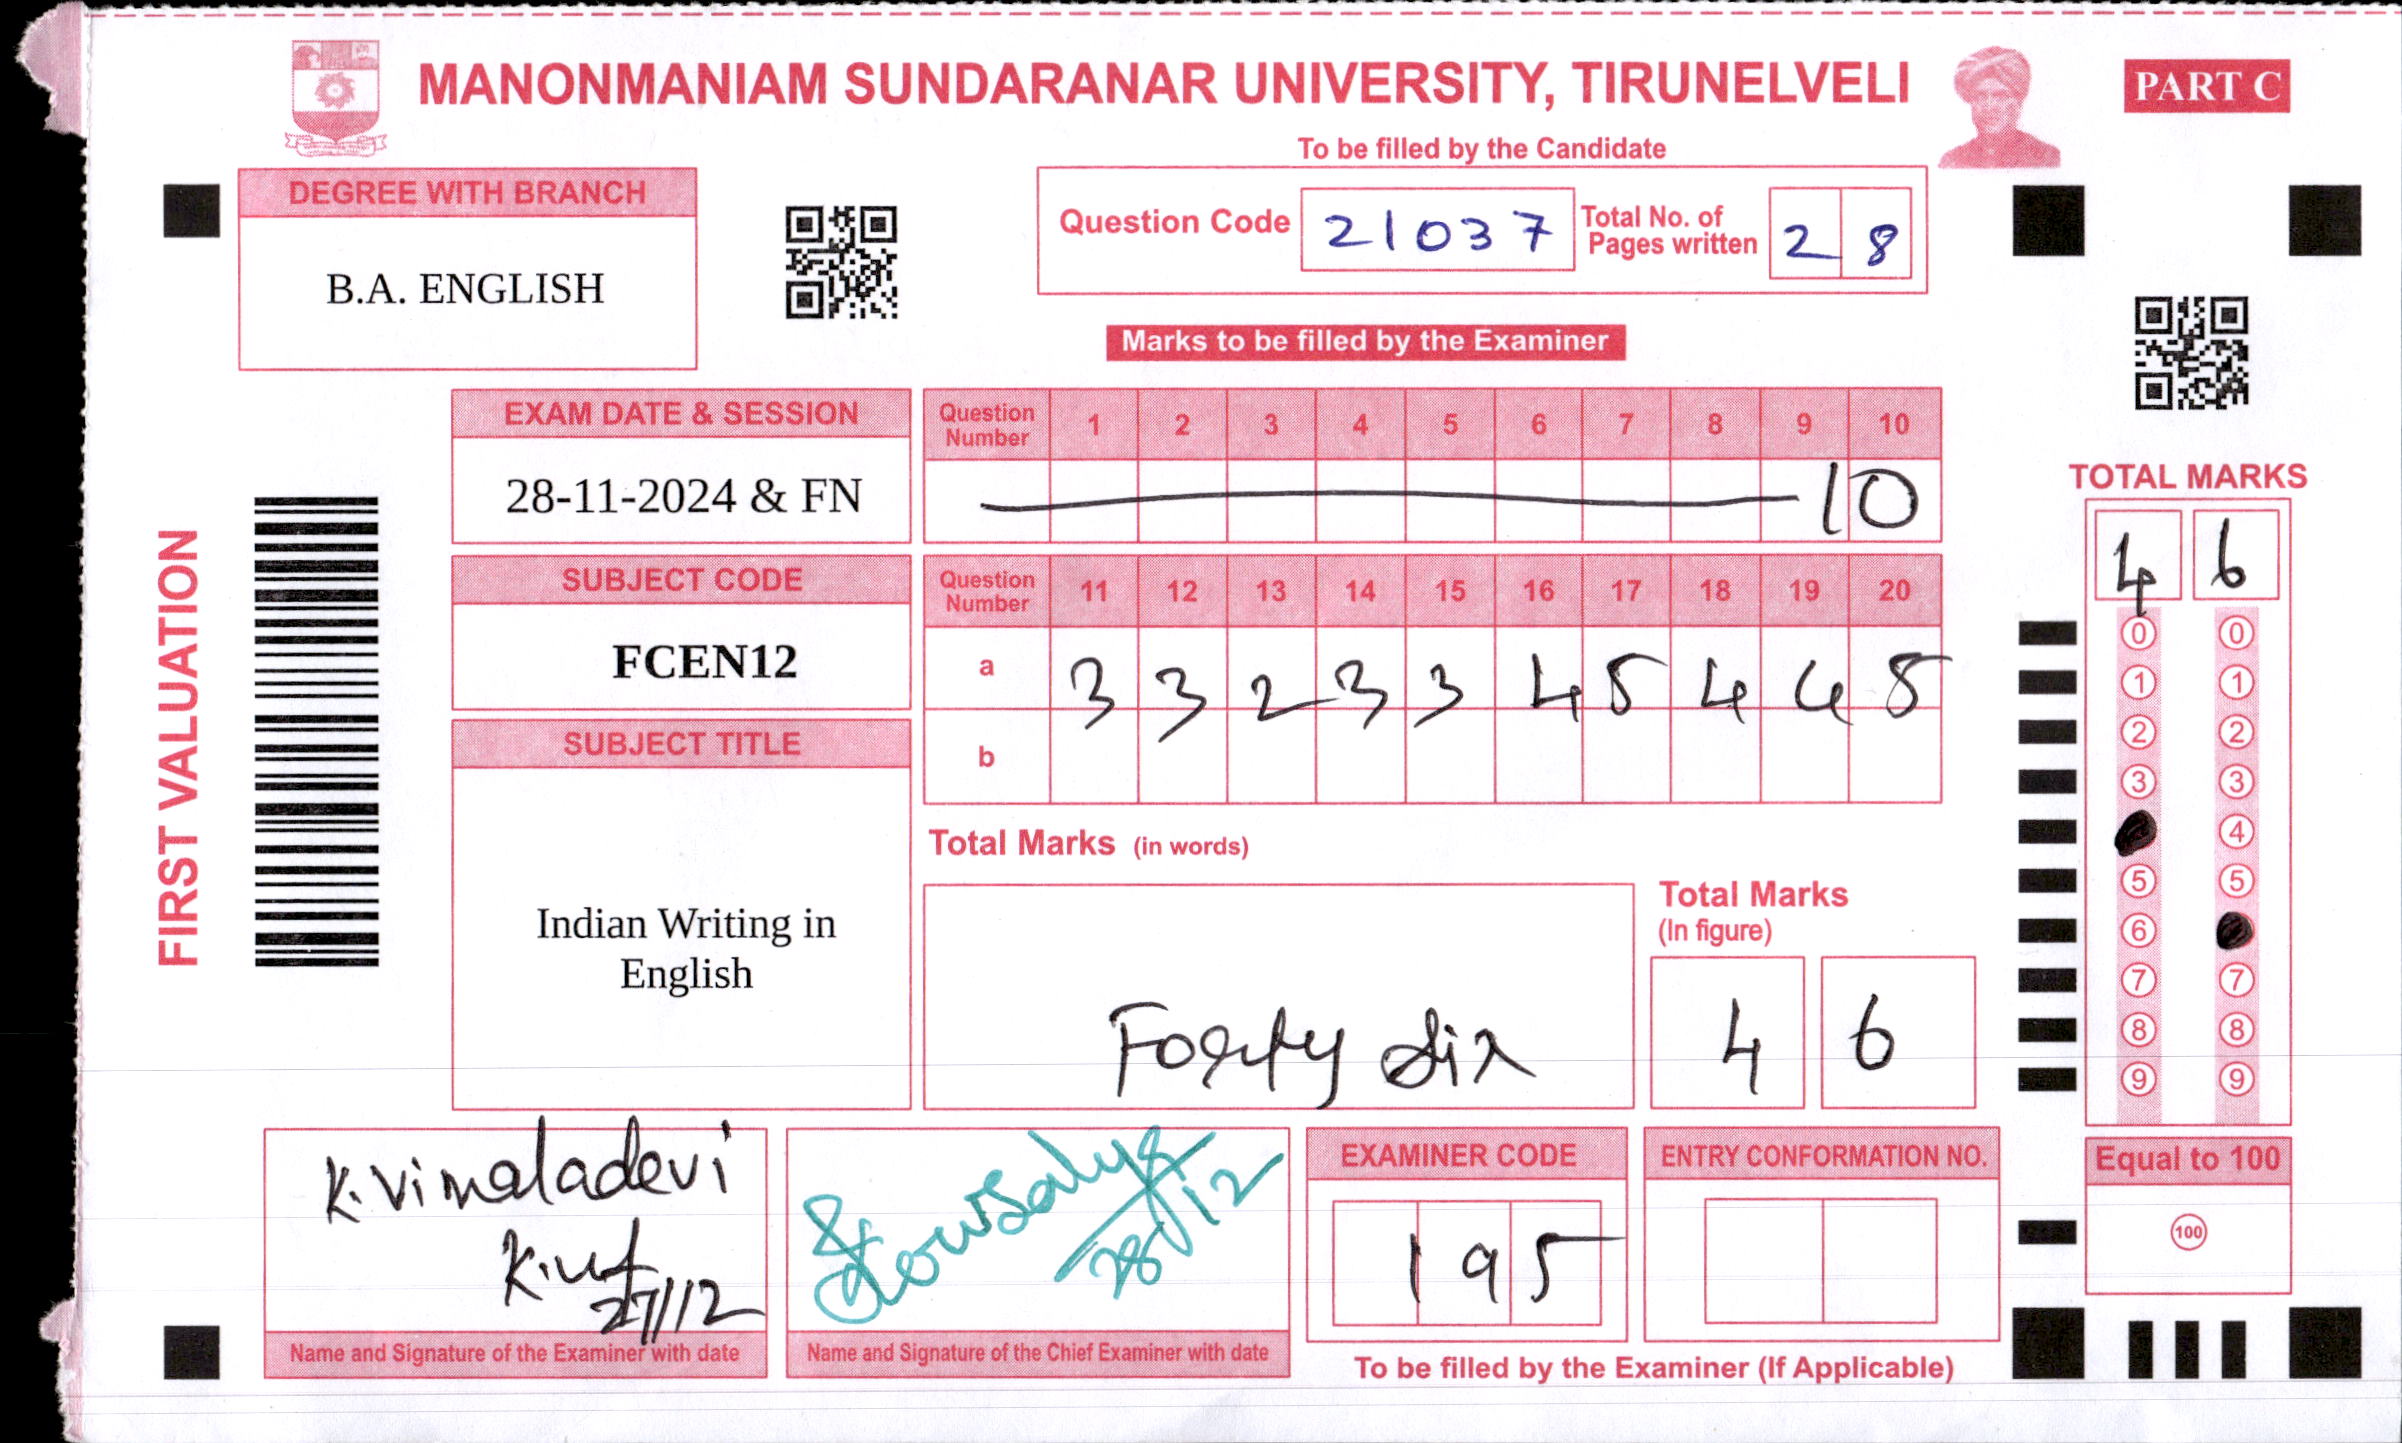 MANONMANIAM SUNDARANAR UNIVERSITY, TIRUNELVELI
PART C
To be filled by the Candidate
DEGREE WITH BRANCH
B.A. ENGLISH
Question Code 21037 Total No. of Pages written 28
Marks to be filled by the Examiner
EXAM DATE & SESSION
28-11-2024 & FN
Question Number 1 2 3 4 5 6 7 8 9 10
10
SUBJECT CODE
FCEN12
Question Number 11 12 13 14 15 16 17 18 19 20
a 3 3 2 3 3 4 5 4 4 5
b
SUBJECT TITLE
Indian Writing in
English
FIRST VALUATION
Total Marks (in words)
Forty six
Total Marks
(In figure)
4 6
TOTAL MARKS
4 6
0 0
1 1
2 2
3 3
4
5 5
6
7 7
8 8
9 9
Equal to 100
100
K. Vimaladevi
27/12
Name and Signature of the Examiner with date
28/12
Name and Signature of the Chief Examiner with date
EXAMINER CODE
195
ENTRY CONFORMATION NO.
To be filled by the Examiner (If Applicable)